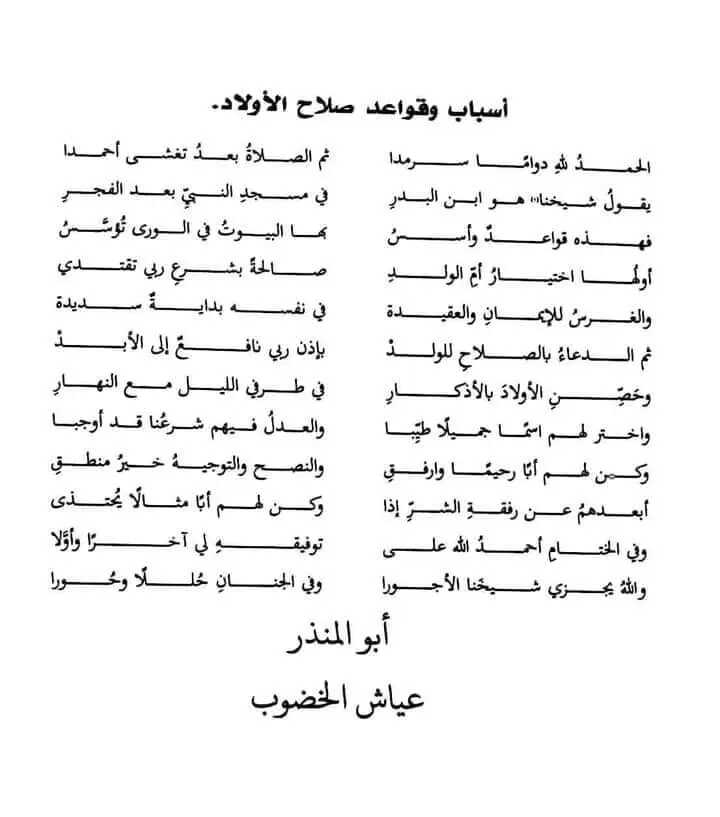 أسباب وقواعد صلاح الأولاد.
الحمدُ للهِ دوامًا سرمدا ثم الصلاةُ بعدُ تغشى أحمدا
يقولُ شيخنا(١) هو ابن البدرِ في مسجدِ النبيِّ بعد الفجرِ
فهذه قواعدٌ وأسسُ بها البيوتُ في الورى تُؤسَّسُ
أولها اختيارُ أمِّ الولدِ صالحةً بشرعِ ربي تقتدي
والغرسُ للإيمانِ والعقيدة في نفسه بدايةٌ سديدة
ثم الدعاءُ بالصلاحِ للولدْ بإذن ربي نافعٌ إلى الأبدْ
وحَصِّنِ الأولادَ بالأذكارِ في طرفي الليل مع النهارِ
واختر لهم اسمًا جميلًا طيِّبا والعدلُ فيهم شرعُنا قد أوجبا
وكن لهم أبًا رحيمًا وارفقِ والنصح والتوجيهُ خيرُ منطقِ
أبعدهمُ عن رفقةِ الشرِّ إذا وكن لهم أبًا مثالًا يُحتذى
وفي الختامِ أحمدُ الله على توفيقهِ لي آخرًا وأوَّلا
واللهُ يجزي شيخَنا الأجورا وفي الجنانِ حُللًا وحُورا
أبو المنذر
عياش الخضوب